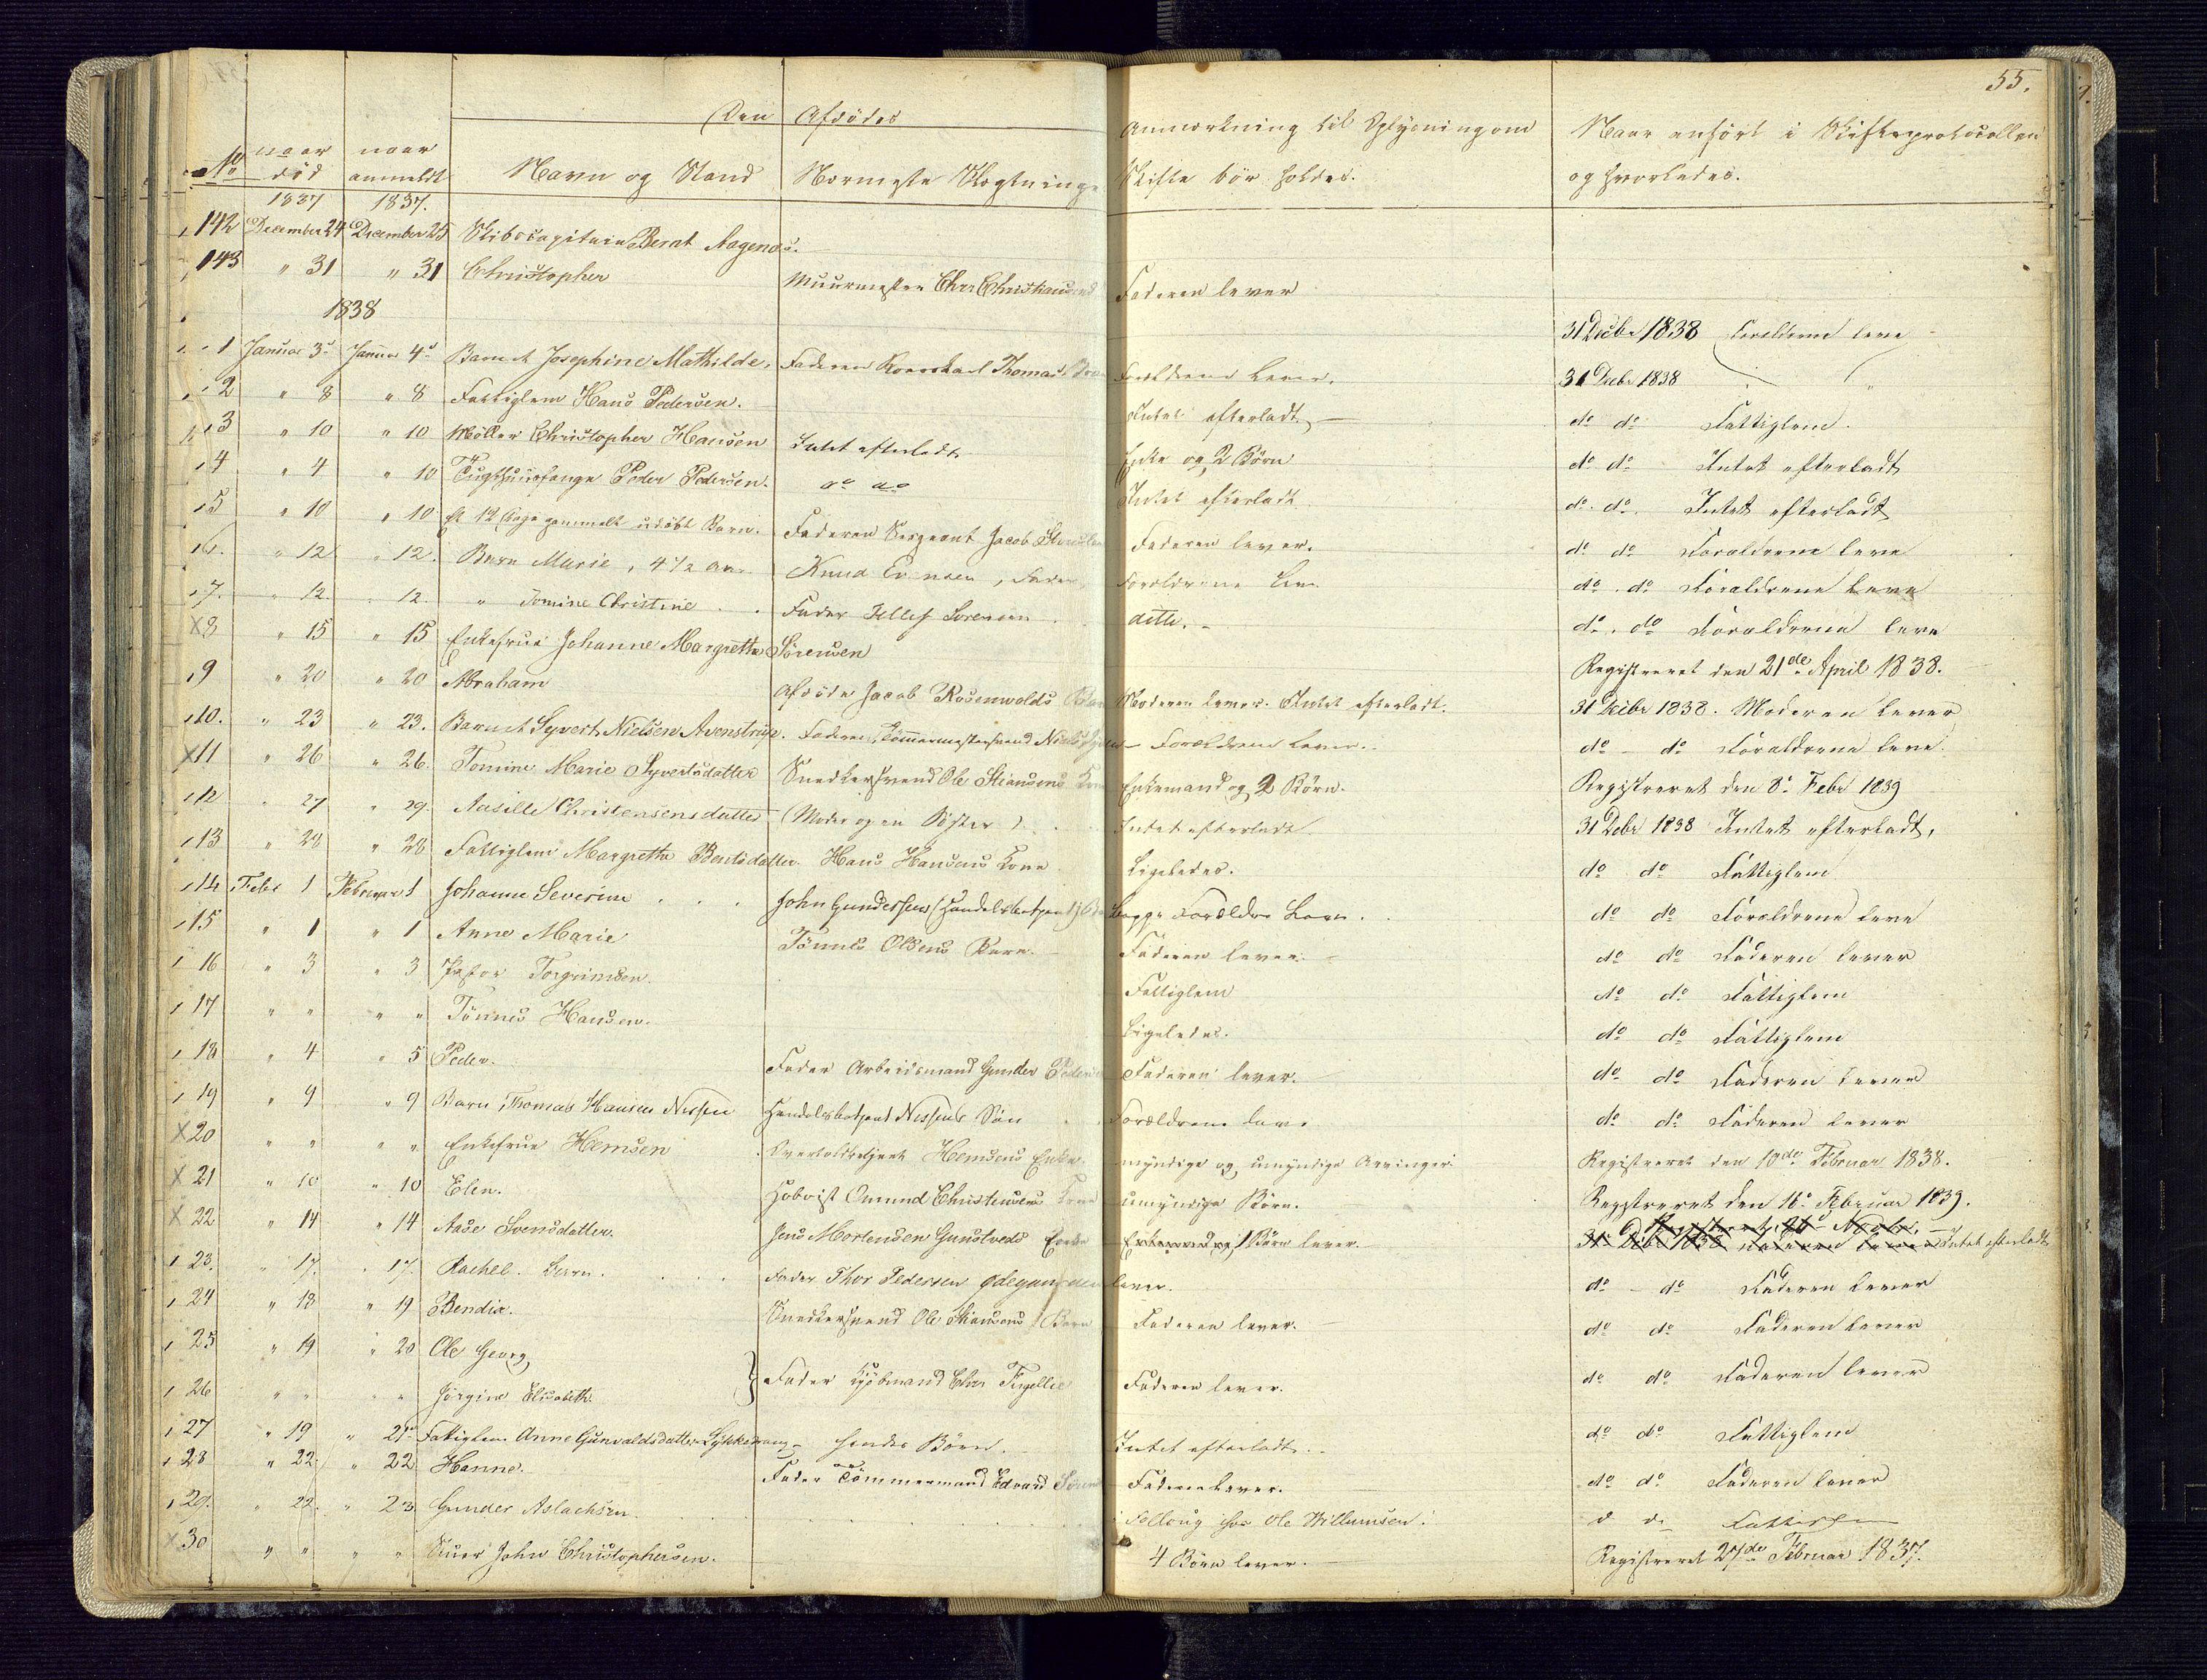 55.
Den Afdødes
Anmerkning til Oplysning om
Naar anført i Skifteprotocollen
No naar død naar anmeldt Navn og Stand Nærmeste Slægtninge Skifte bør holdes. og hvorledes.
1837 1837.
142 December 24 December 25 Skibscapitain Berat Aagenæs.
143 " 31 " 31 Christopher Muurmester Chr Christiansens Faderen lever
1838
31 Decbr 1838 Forældrene leve
1 Januar 3d Januar 4d Barnet Josephine Mathilde, Faderen Thomas Forældrene lever. 31 Decbr 1838 " "
2 " 8 " 8 Fattiglem Hans Pedersen. Intet efterladt do do Fattiglem.
3 " 10 " 10 Møller Christopher Hansen Intet efterladt Enke og 2 Børn do do Intet efterladt
4 " 4 " 10 Tugthuusfange Peder Pedersen. do do Intet efterladt do. do. Intet efterladt
5 " 10 " 10 Et 12 Dage gammelt udøbt Barn. Faderen Sergeant Jacob Faderen lever. do do Forældrene leve
6. " 12 " 12. Barn Marie, 4 1/2 Aar Knud Evensen, Fader Forældrene Lev. do. do Forældrene leve
7. " 12. " 12. " Tomine Christine Fader Tellef Sørensen ditto. do. do Forældrene leve
X 8 " 15 " 15 Enkefrue Johanne Margrethe Sørensen Registreret den 21de April 1838.
9 " 20 " 20 Abraham Afdøde Jacob Rosenwolds Barn Moderen lever. Intet efterladt. 31 Decbr 1838. Moderen lever
10. " 23 " 23. Barnet Syvert Nielsen Avenstrup. Faderen Tømmermestersvend Niels Forældrene lever. do - do Forældrene leve.
X 11 " 26 " 26. Tomine Marie Syvertsdatter Snedkersvend Ole Stiansens Kone Enkemand og 2 Børn. Registreret den 8d Febr 1839
12 " 27 " 29. Aasille Christensensdatter (Moder og en Søster) Intet efterladt. 31 Debr 1838 Intet efterladt,
13 " 28 " 28 Fattiglem Margrethe Bentsdatter Hans Hansens Kone Ligeledes. do do Fattiglem
14 Febr 1 Februar 1 Johanne Severine John Gundersen (Handelsbetjent) Begge Forældre Leve. do do Forældrene leve
15 " 1 " 1 Anne Marie Tønnes Olsens Barn. Faderen lever. do do Faderen lever
16 " 3 " 3 Torgrimsen. Fattiglem do do Fattiglem
17 " " " " Tönnes Hansen. Ligeledes. do do Fattiglem
18 " 4 " 5 Peder. Fader Arbeidsmand Gunder Pedersen Faderen lever. do do Faderen lever
19 " 9 " 9 Barn, Thomas Hansen Nissen Handelsbetjent Nissens Søn Forældrene lever do do Faderen lever
X 20 " " " " Enkefrue Hemsen Overtoldbetjent Hemsens Enke. myndige og umyndige Arvinger. Registreret den 10de Februar 1838.
X 21 " 10 " 10 Elen. Hoboist Omund Christensens Kone umyndige Børn. Registreret den 16d Februar 1839.
X 22 " 14 " 14 Aase Svensdatter. Jens Mortensen Gunstveds Enke Børn lever. 31 Debr 1838 Intet efterladt
23. " 17. " 17. Rachel. Barn. Fader Thor Pedersen Ødegaard lever. do - do Faderen lever
24 " 18 " 19 Bendix. Snedkersvend Ole Stiansens Barn Faderen lever. do do Faderen lever
25 " 19 " 20 Ole Georg
26 " " " " Jørgine Elisabeth. } Fader Kjøbmand Chr Faderen lever. do do Faderen lever
27 " 19 " 21 Fattiglem Anne Gunvaldsdatter Lykkedrang - hendes Børn. Intet efterladt. do do Fattiglem
28 " 22. " 22 Hanne. Fader Tømmermand Edvard Faderen lever. do do Faderen lever
29. " 22. " 23. Gunder Aslachsen hos Ole Willumsen. d do Fattiglem
X 30 " " " " John Christophersen. 4 Børn lever. Registreret 27de Februar 1837.